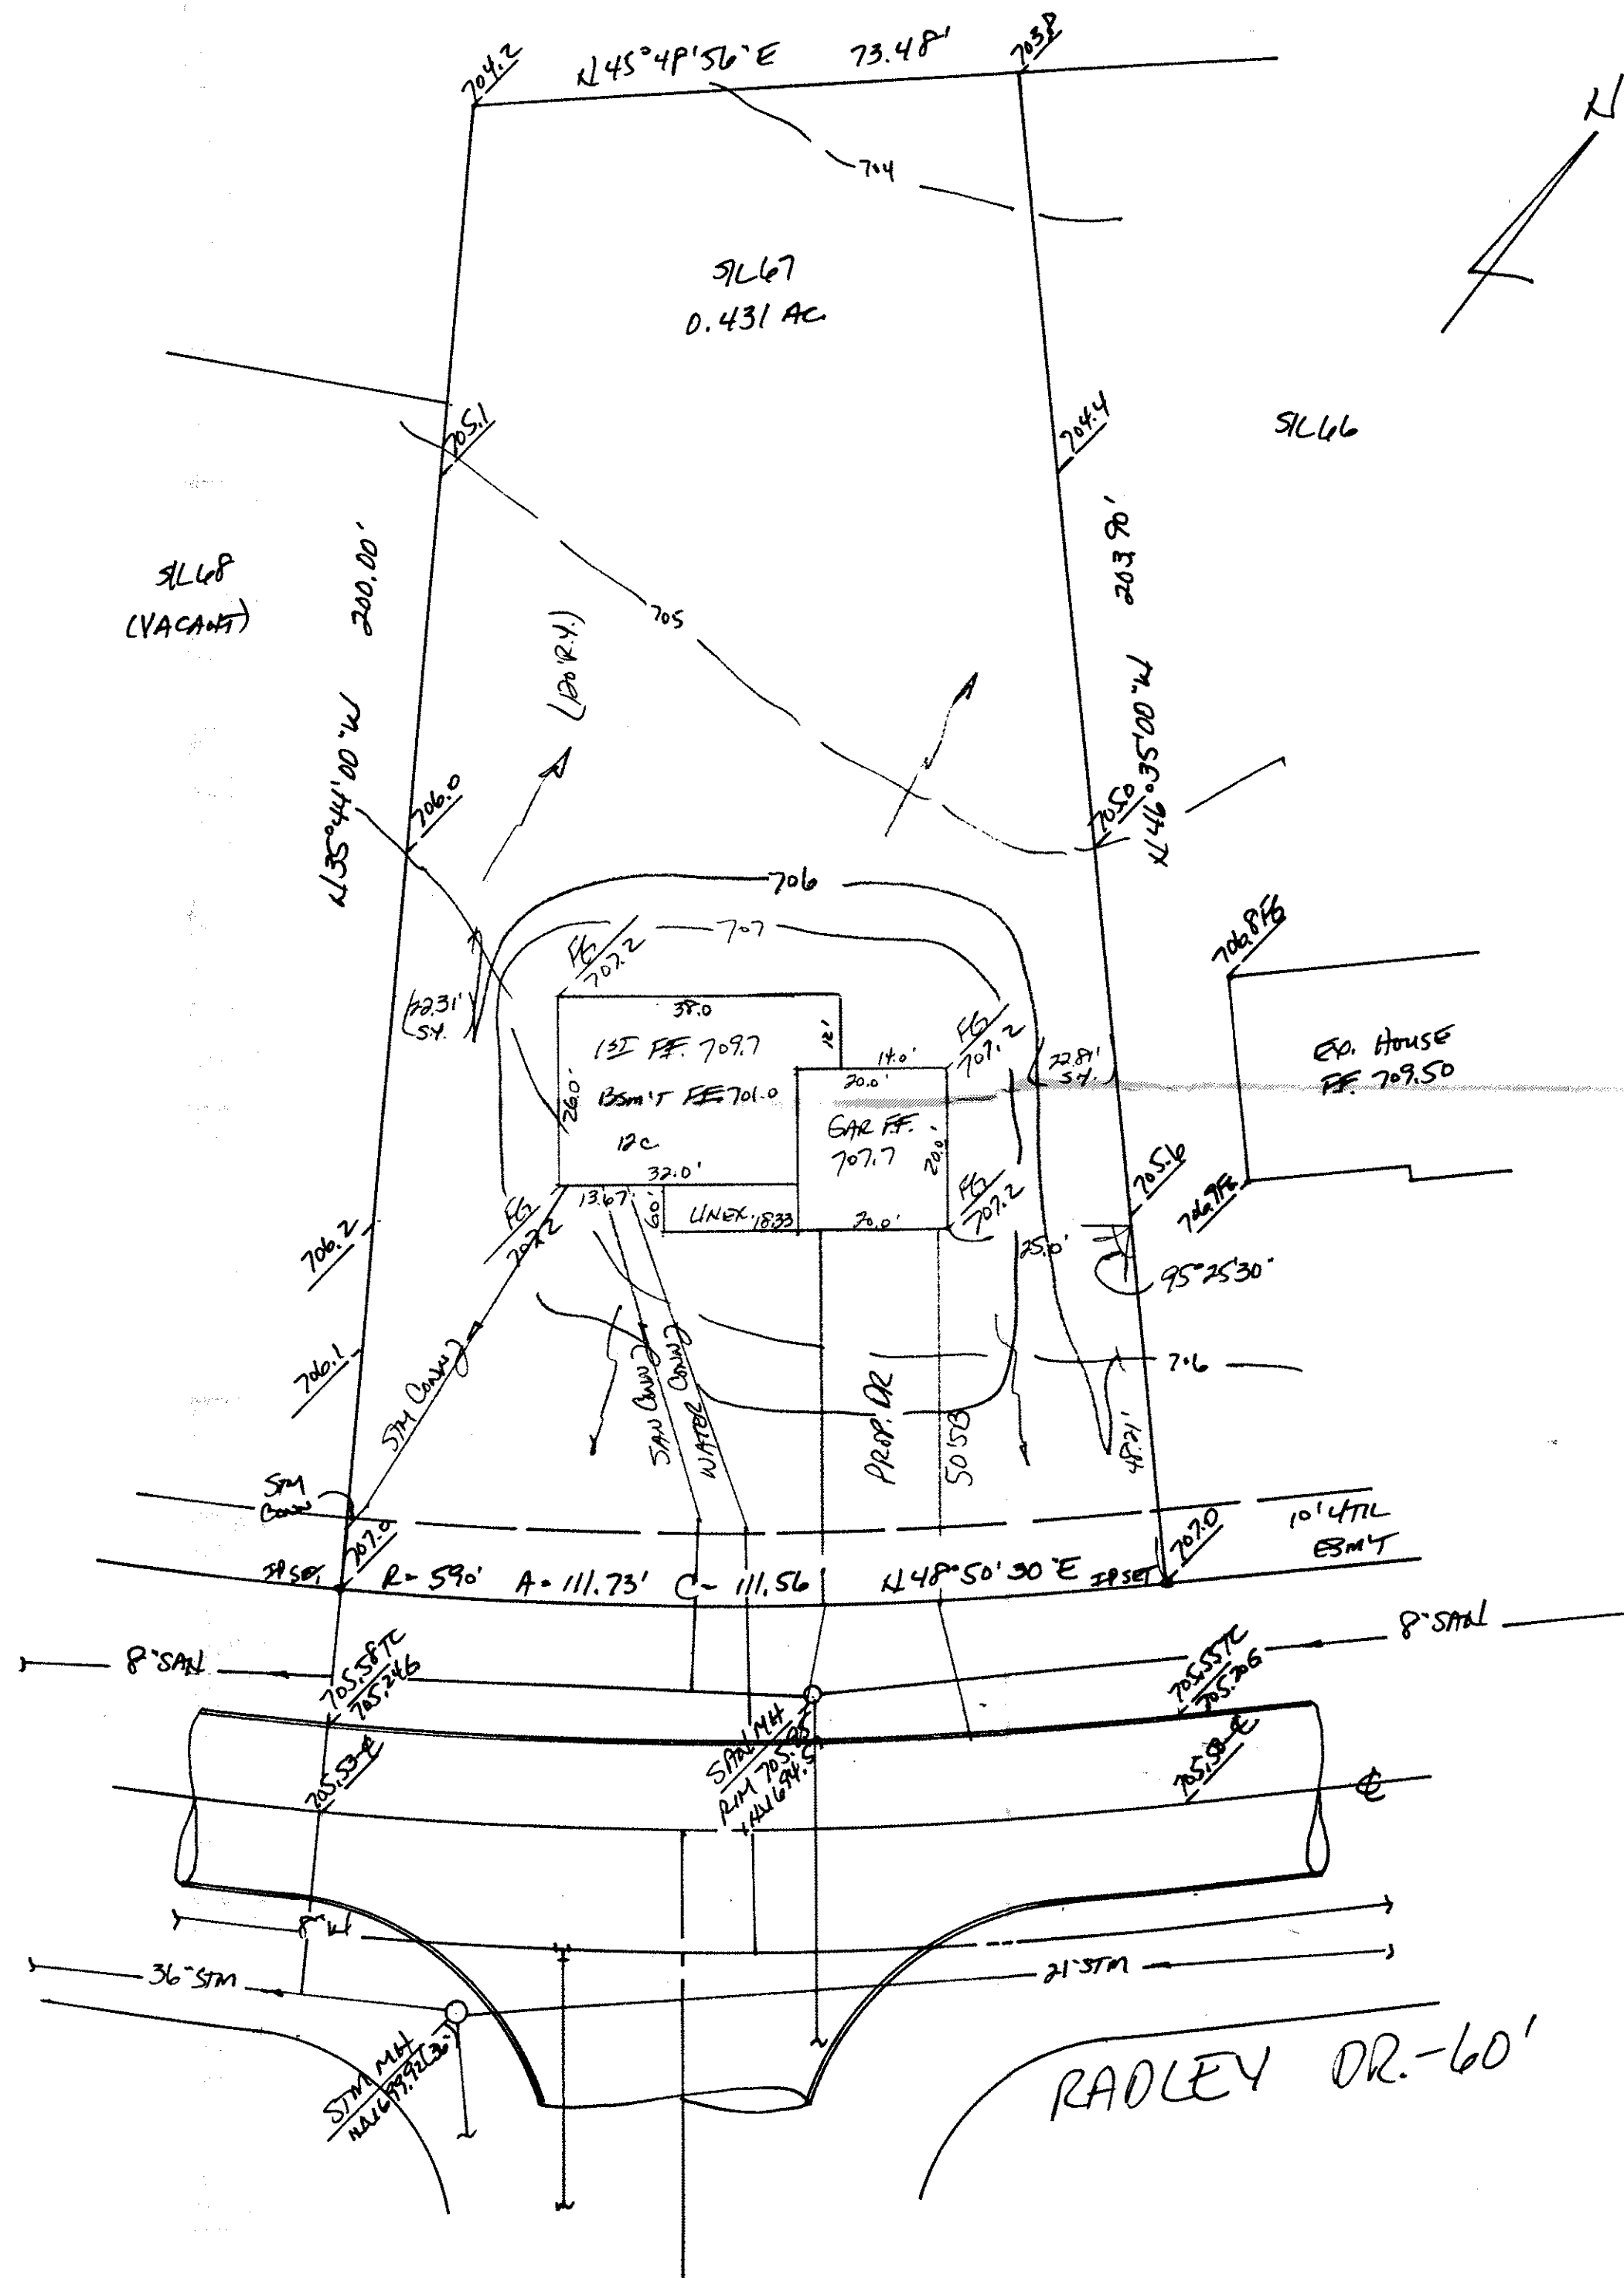 704.2
N 45°48'56" E 73.48'
703.8
N
704
S/L 67
0.431 AC.
705.1
704.4
S/L 66
S/L 68
(VACANT)
200.00'
203.90'
705
(120' R.Y.)
N 35°44'00" W
N 46°35'00" W
706.0
705.0
706
707
FG
707.2
706.8 FG
(22.31'
S.Y.)
38.0
12'
1ST F.F. 709.7
FG
707.2
14.0'
20.0'
(22.81'
S.Y.)
EX. HOUSE
F.F. 709.50
26.0'
BSM'T F.F. 701.0
12 C.
GAR F.F.
707.7
20.0'
32.0'
705.6
706.9 FG
FG
707.2
13.67'
6.0'
UNEX.
18.33
20.0'
FG
707.2
25.0'
95°25'30"
706.2
706.1
706
STM CONN
SAN CONN
WATER CONN
PROP. DR
50' SB
48.21'
STM
CONN
707.0
707.0
10' UTIL
ESM'T
IP SET
R= 590' A= 111.73' C= 111.56 N 48°50'30" E
IP SET
8" SAN
8" SAN
705.58 TC
705.24 G
705.55 TC
705.20 G
705.53 ℄
SAN MH
RIM 705.95
INV 694.5
705.58 ℄
℄
8" W
36" STM
21" STM
STM MH
INV 699.92 (36")
RADLEY DR.-60'